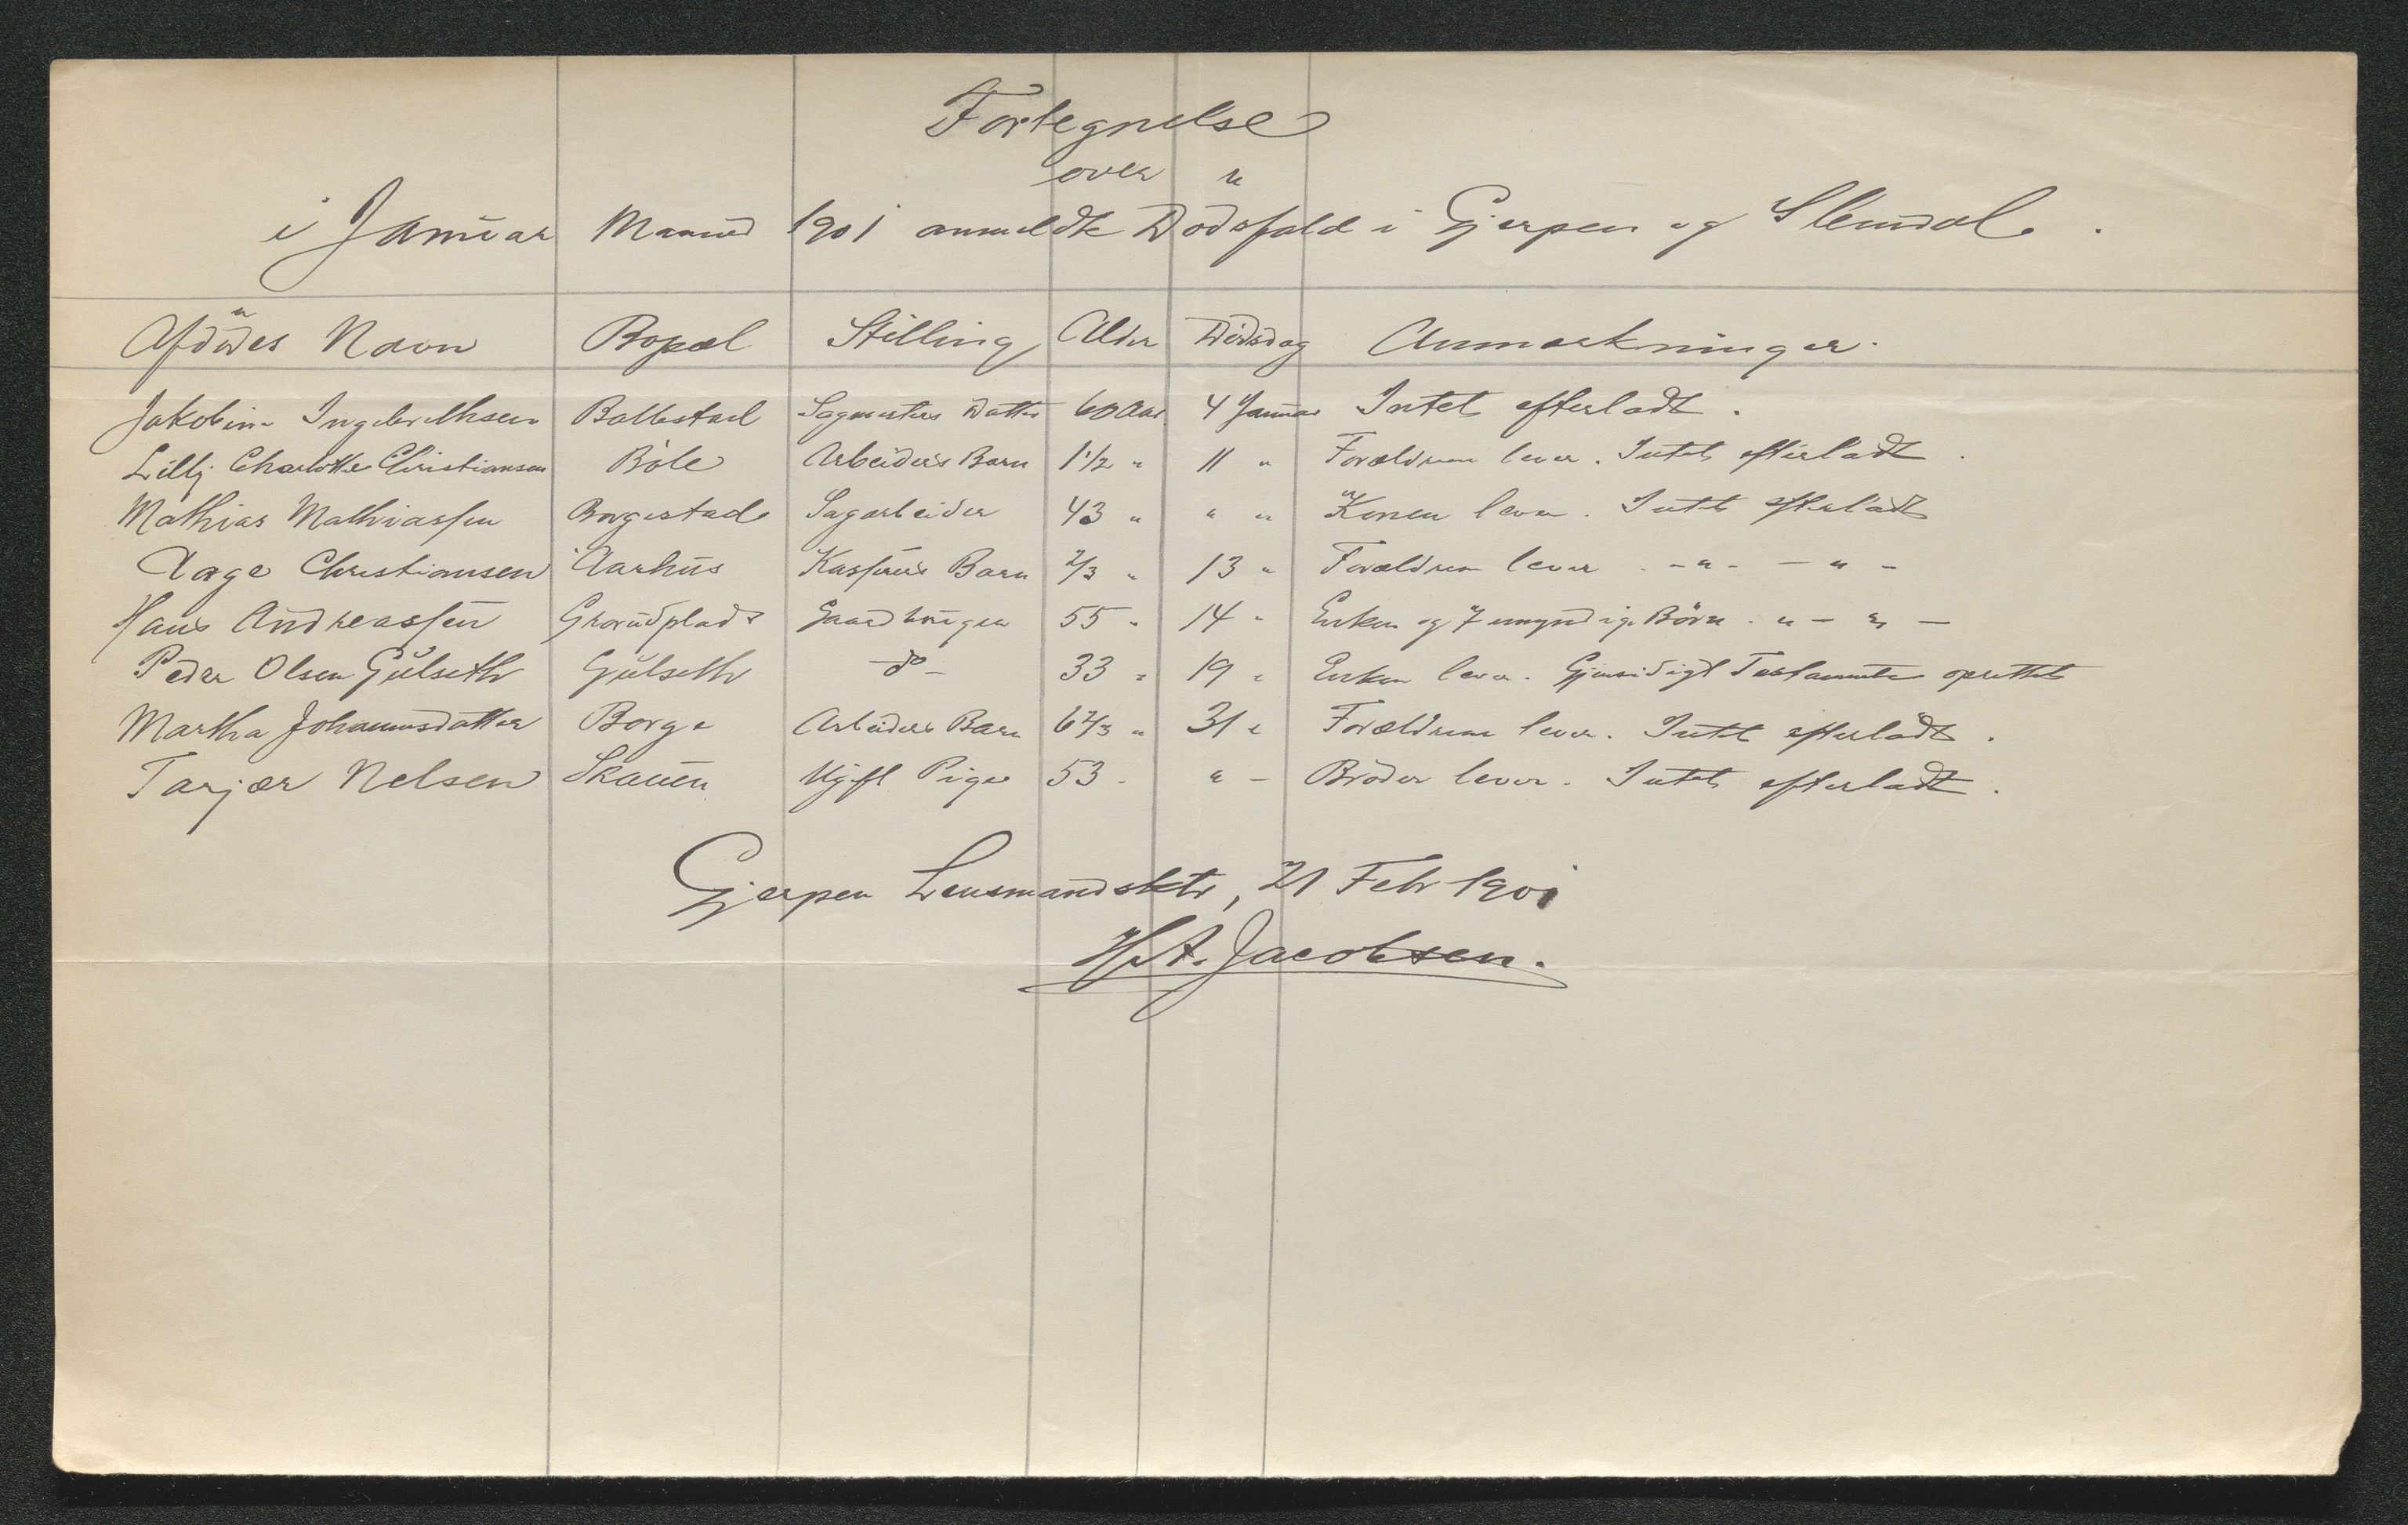 Fortegnelse
over
i Januar Maaned 1901 anmeldte Dödsfald i Gjerpen og Slemdal.
Afdödes Navn Bopæl Stilling Alder Dödsdag Anmærkninger.
Jakobine Ingebrethsen Ballestad Sagmesters Datter 60 Aar. 4 Januar Intet efterladt.
Lilly Charlotte Christiansen Böle Arbeiders Barn 1 1/2 " 11 " Forældrene lever. Intet efterladt.
Mathias Mathiassen Borgestad Sagarbeider 43 " " " Konen lever. Intet efterladt
Aage Christiansen Aarhus Barn 2/3 " 13 " Forældrene lever. - " - - " -
Hans Andreassen Grorudplads Gaardbruger 55 " 14 " Enken og 7 umyndige Börn. " - " -
Peder Olsen Gulseth Gulseth - do - 33 " 19 " Enken lever. Gjensidigt Testamente oprettet
Martha Johannesdatter Borge Arbeiders Barn 6 2/3 " 31 " Forældrene lever. Intet efterladt.
Tarjær Nelsen Skauen Ugift Pige 53 - " - Bröder lever. Intet efterladt.
Gjerpen Lensmandsktr, 21 Febr 1901
H.A. Jacobsen.